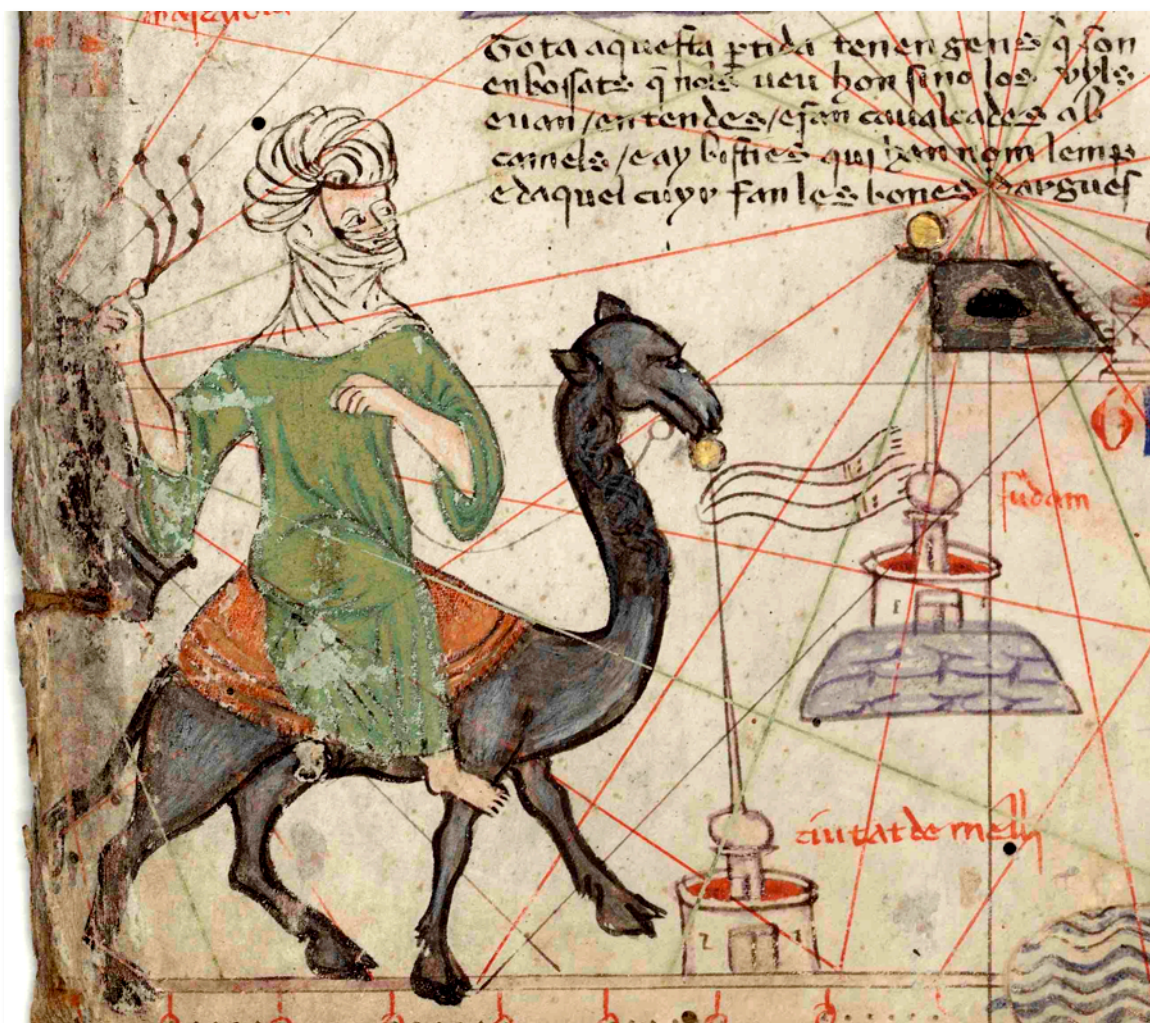 Tota aquesta ꝑtida tenen gens q̃ son
enbossats q̃ nols ueu hon sino los uyls
e uan / en tendes / e fan caualcades ab
camels / e ay bisties qui han nom lemp
e daquel cuyr fan les bones dargues
sudam
ciutat de melly